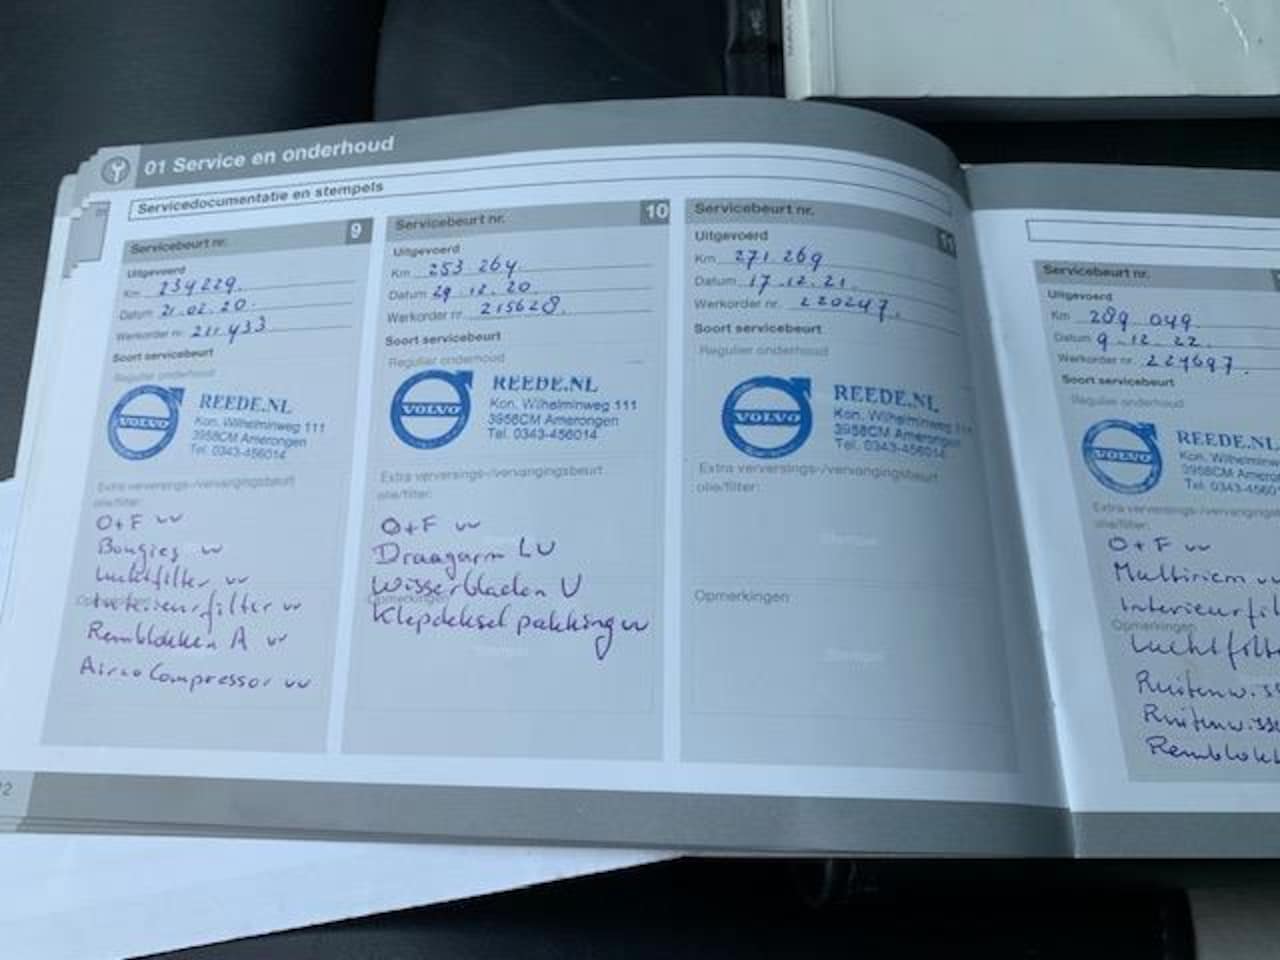 01 Service en onderhoud
Servicedocumentatie en stempels
Servicebeurt nr. 9
Uitgevoerd
Km 234229.
Datum 21.02.20.
Werkorder nr. 211433
Soort servicebeurt
Regulier onderhoud
VOLVO
REEDE.NL
Kon. Wilhelminweg 111
3958CM Amerongen
Tel. 0343-456014
Extra verversings-/vervangingsbeurt
olie/filter:
O+F
Bougies
Luchtfilter
Interieurfilter
Opmerkingen
Remblokken A
Airco Compressor
Servicebeurt nr. 10
Uitgevoerd
Km 253 264.
Datum 29.12.20
Werkorder nr. 215628.
Soort servicebeurt
Regulier onderhoud
VOLVO
REEDE.NL
Kon. Wilhelminweg 111
3958CM Amerongen
Tel. 0343-456014
Extra verversings-/vervangingsbeurt
olie/filter:
O+F
Draagarm LV
Wisserbladen V
Opmerkingen
Klepdeksel pakking
Servicebeurt nr. 11
Uitgevoerd
Km 271 269
Datum 17.12.21.
Werkorder nr. 220247.
Soort servicebeurt
Regulier onderhoud
VOLVO
REEDE.NL
Kon. Wilhelminweg 111
3958CM Amerongen
Tel. 0343-456014
Extra verversings-/vervangingsbeurt
olie/filter:
Opmerkingen
Servicebeurt nr.
Uitgevoerd
Km 289 049
Datum 9.12.22.
Werkorder nr. 224697.
Soort servicebeurt
Regulier onderhoud
VOLVO
REEDE.NL
Kon. Wilhelminw
3958CM Ameron
Tel. 0343-4560
Extra verversings-/vervangings
olie/filter:
O+F
Multiriem
Interieurfil
Opmerkingen
Luchtfilte
Ruitenwiss
Ruitenwisse
Remblokk
12